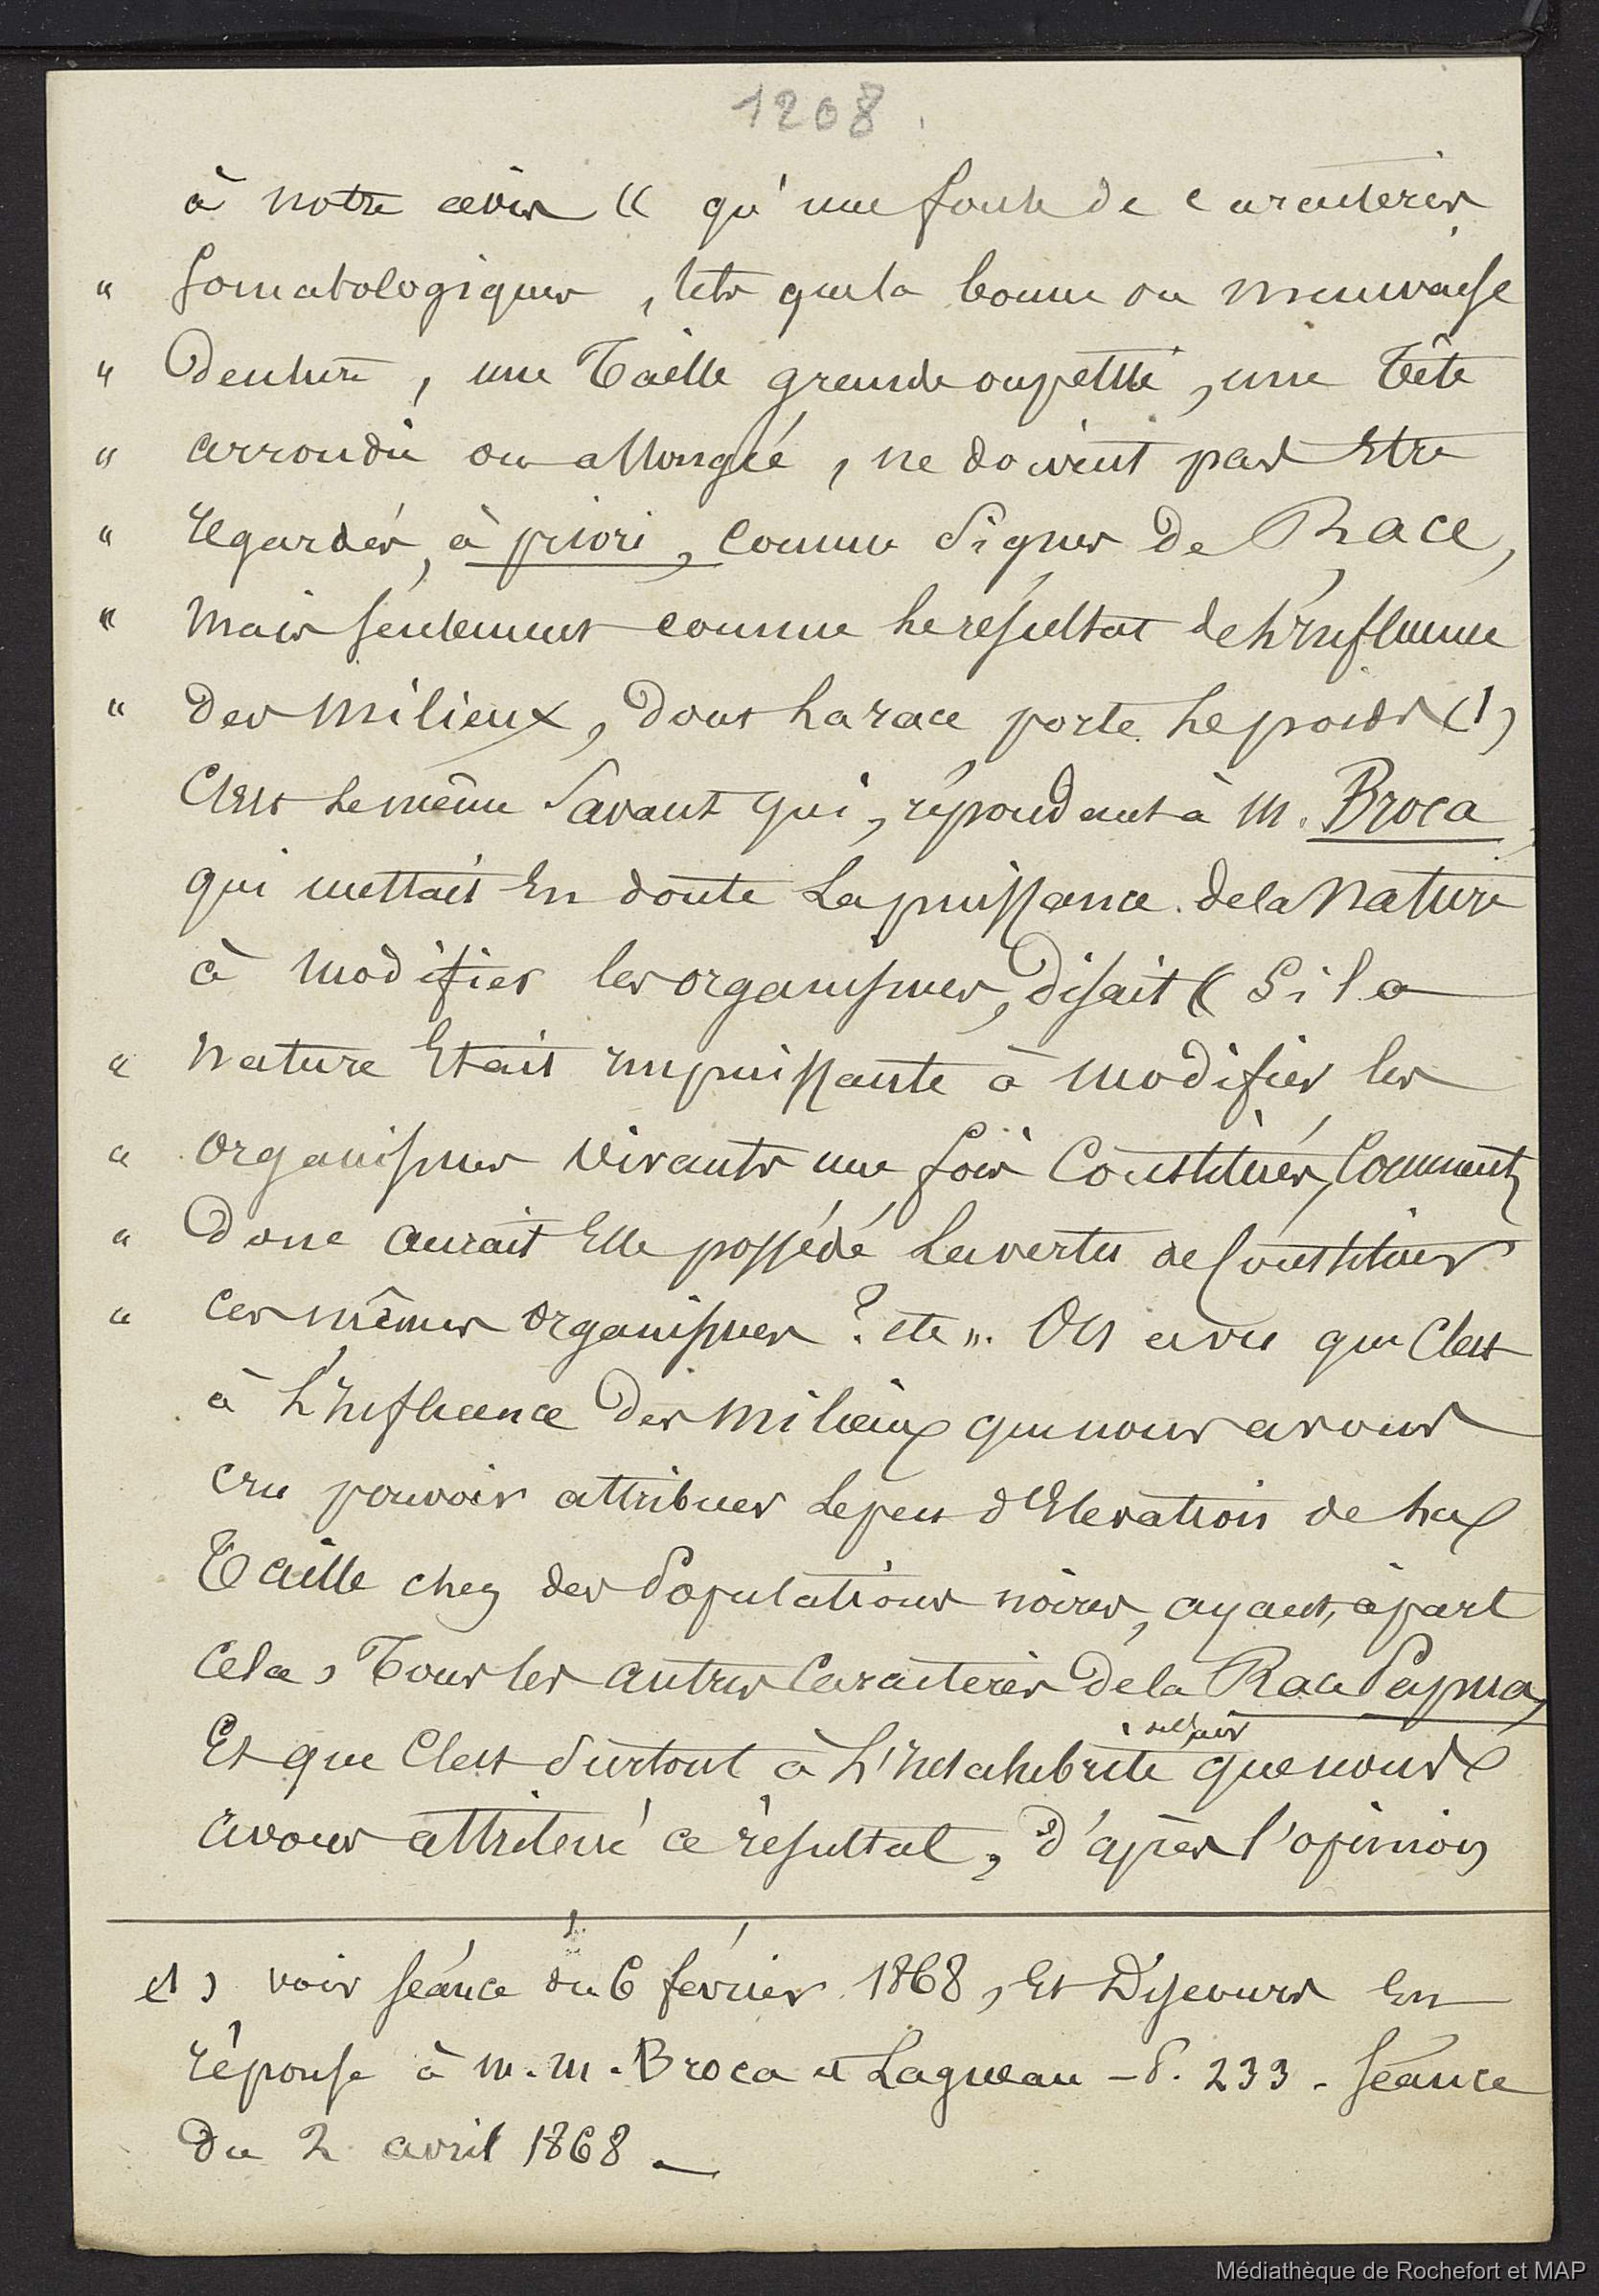 1208.
à notre avis « qu'une foule de caractères
" somatologiques, tels que la bonne ou mauvaise
" denture, une Taille grande ou petite, une Tête
" arrondie ou allongée, ne doivent pas Etre
" regardés, à priori, comme Signes de Race,
" mais seulement comme le résultat de l'Influence
" des milieux, dont la race porte le poids (1)
C'est le même Savant qui, répondant à M. Broca,
qui mettait En doute La puissance de la Nature
à modifier les organismes, disait « Si la
" nature Etait impuissante à modifier les
" organismes vivants une fois Constitués, Comment
" Donc aurait Elle possédé La vertu de Constituer
" Ces mêmes organismes ? etc ". On a vu que C'est
à L'Influence Des milieux que nous avons
cru pouvoir attribuer Le peu d'Elevation de la
Taille chez des Populations noires, ayant, à part
Cela, Tous les autres Caractères De la Race Papua,
Et que C'est Surtout à L'Insalubrité que nous
avons attribué ce résultat, d'après l'opinion
(1) voir séance du 6 février 1868, Et Discours En
réponse à M.M. Broca et Lagneau - P. 233 - Séance
Du 2 avril 1868 _
Médiathèque de Rochefort et MAP